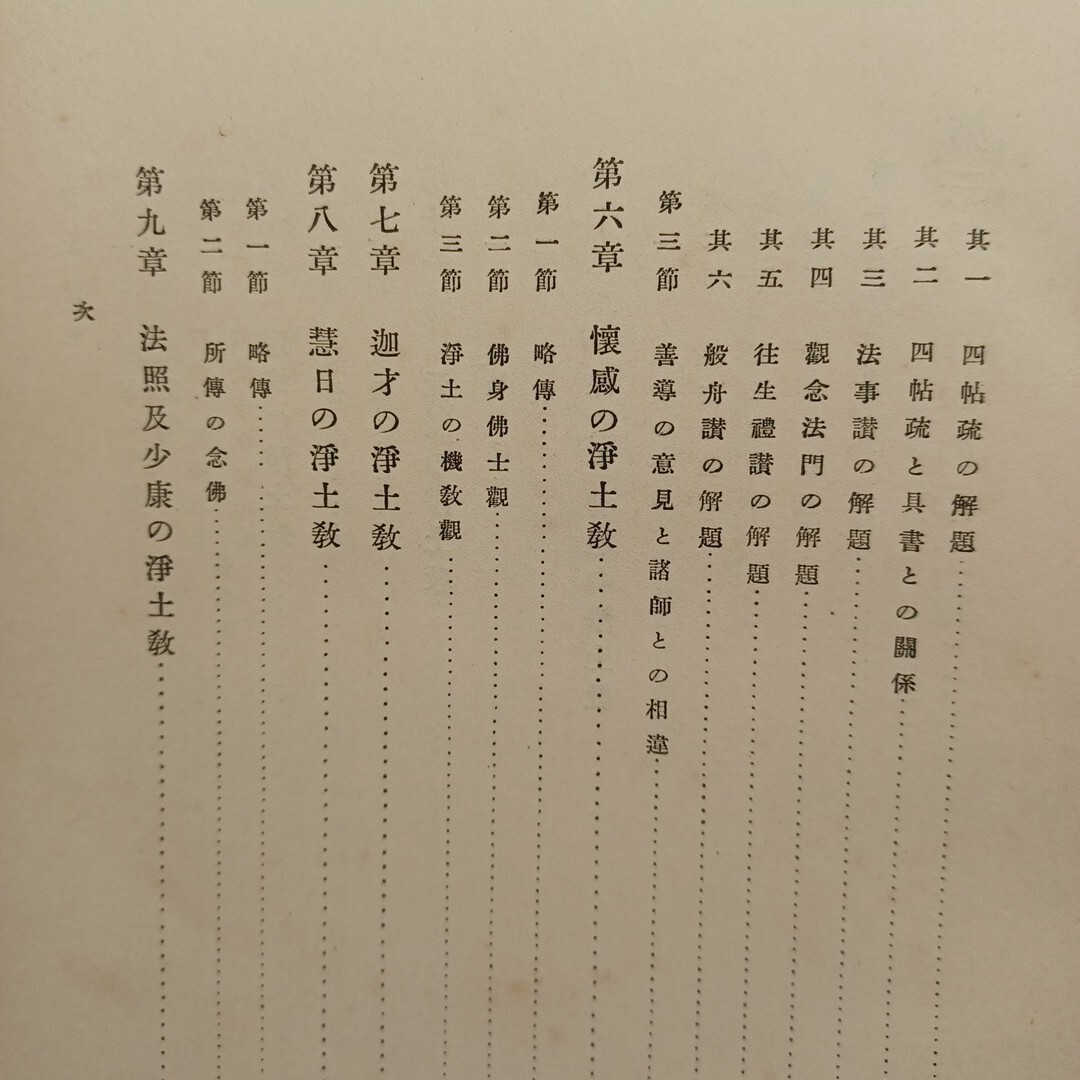 其一 四帖疏の解題
其二 四帖疏と具書との關係
其三 法事讃の解題
其四 觀念法門の解題
其五 往生禮讃の解題
其六 般舟讃の解題
第三節 善導の意見と諸師との相違
第六章 懷感の淨土教
第一節 略傳
第二節 佛身佛士觀
第三節 淨土の機教觀
第七章 迦才の淨土教
第八章 慧日の淨土教
第一節 略傳
第二節 所傳の念佛
第九章 法照及少康の淨土教
次